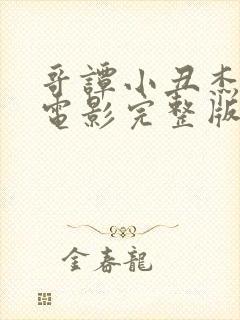 哥譚小丑杰
電影完整版
金春龍